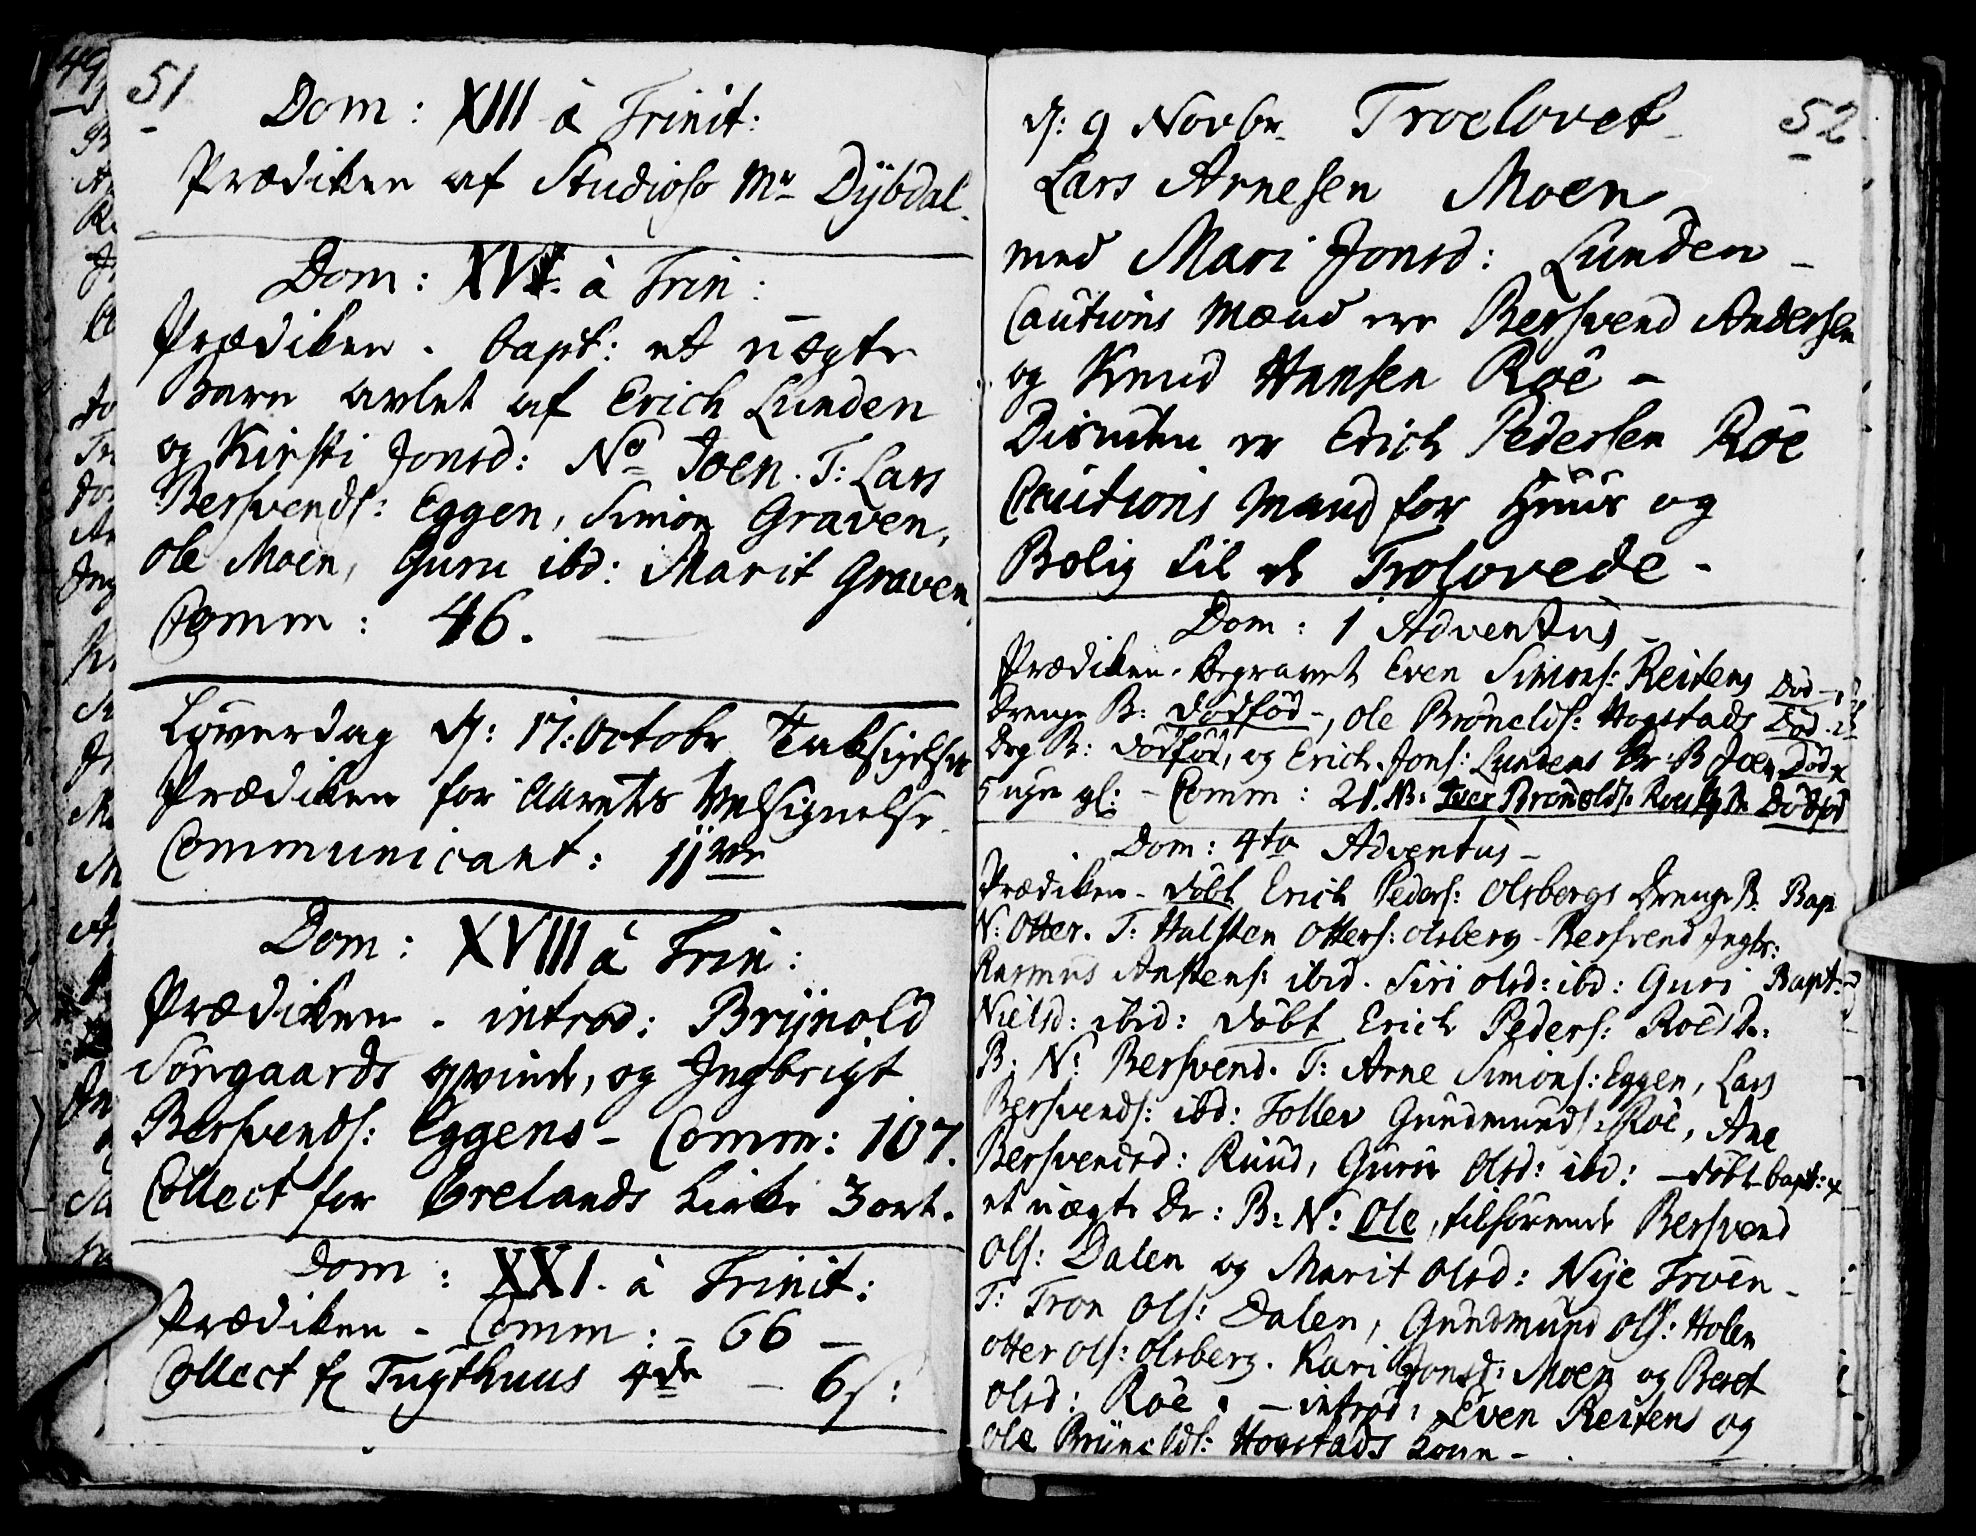 51
Dom: XIII à Trinit:
Prædiken af Studioso Mr Dÿbdal.
Dom: XVI. à Trin:
Prædiken. bapt: et uægte
Barn avlet af Erich Lunden
og Kirsti Jonsd: No Joen. T: Lars
Bersvends: Eggen, Simon Graven,
Ole Moen, Guru ibd: Marit Graven
Comm: 46.
Løverdag d: 17: Octobr Taksigelse
Prædiken for Aarets Velsignelse.
Communicant: 11ve
Dom: XVIII à Trin:
Prædiken. introd: Brÿnold
Sörgaards qvinde, og Ingbrigt
Bersvends: Eggens - Comm: 107.
Collect for Örelands Kirke 3 ort.
Dom: XXI. à Trinit:
Prædiken - Comm: - 66 -
Collect f Tugthuus 4de - 6 s:
52
d: 9 Novbr. Troelovet
Lars Arnesen Moen
med Mari Jonsd: Lunden -
Cautions Mænd ere Bersvend Andersen
og Knud Hansen Roë -
Disuden er Erich Pedersen Röe
Cautions Mand for Huus og
Bolig til de Trolovede -
Dom: 1 Adventus -
Prædiken. Begravet Even Simons: Reitens
Drenge B: dödföd -, Ole Brönelds: Hogstads
Drg B: dödföd, og Erich Jons: Lundens Dr: B Joen
5 uger gl: - Comm: 21. NB: Iver Brönolds: Dödföd
Dom: 4ta Adventus -
Prædiken - döbt Erich Peders: Olsbergs Drenge B. Bap
N: Otter. T: Halsten Otters: Olsberg - Bersvend Ingbr:
Rasmus Anstens: ibid. Siri Olsd: ibd: Guri
Nielsd: ibid: döbt Erich Peders: Roës Dr:
B: N: Bersvend. T: Arne Simons: Eggen, Lars
Bersvends: ibd: Tollev Gundmunds: Roë, Ane
Bersvendsd: Ruud, Guru Olsd: ibd: - döbt bapt:
et uægte Dr: B: N: Ole, tilhörende Bersvend
Ols: Dalen og Marit Olsd: Nÿe Troën -
T: Tron Ols: Dalen, Gundmund Ols: Holen
Otter Ols: Olsberg. Kari Jonsd: Moen og Beret
Olsd: Roë. - introd: Even Reitens og
Ole Brünelds: Hogstads kone -